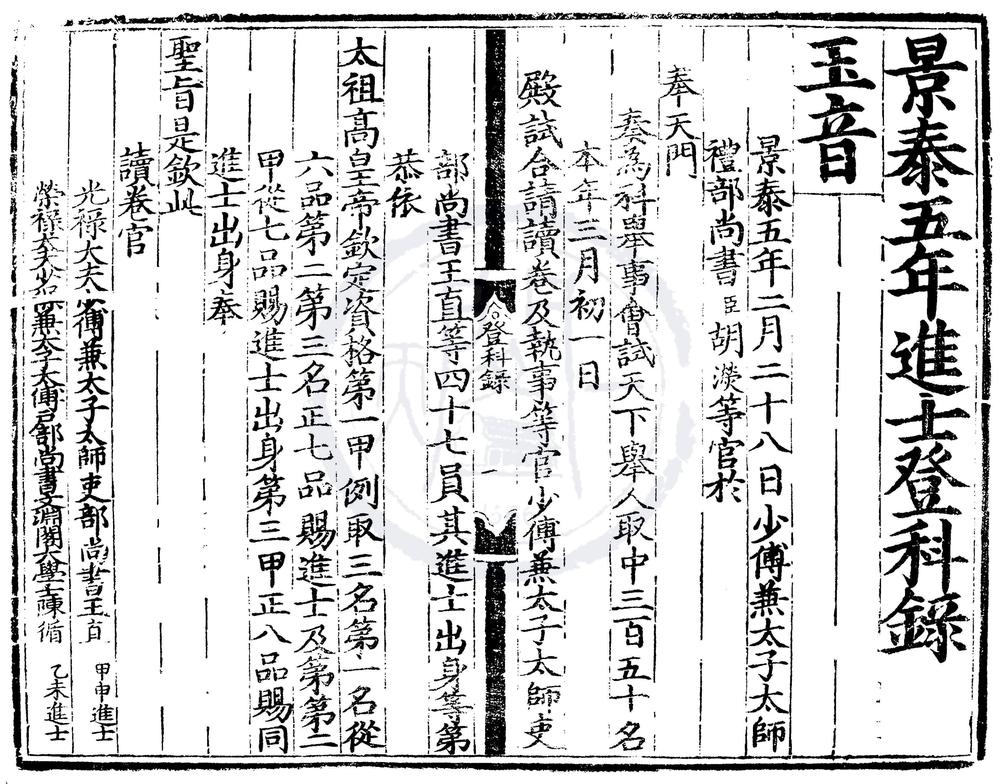 景泰五年進士登科錄
玉音
景泰五年二月二十八日少傅兼太子太師
禮部尚書臣胡濙等官於
奉天門
奏為科舉事會試天下舉人取中三百五十名
本年三月初一日
殿試合請讀卷及執事等官少傅兼太子太師吏
登科錄
一
部尚書王直等四十七員其進士出身等第
恭依
太祖高皇帝欽定資格第一甲例取三名第一名從
六品第二第三名正七品賜進士及第第二
甲從七品賜進士出身第三甲正八品賜同
進士出身奉
聖旨是欽此
讀卷官
光祿大夫少傅兼太子太師吏部尚書王直 甲申進士
榮祿大夫少保兼太子太傅戶部尚書文淵閣大學士陳循 乙未進士